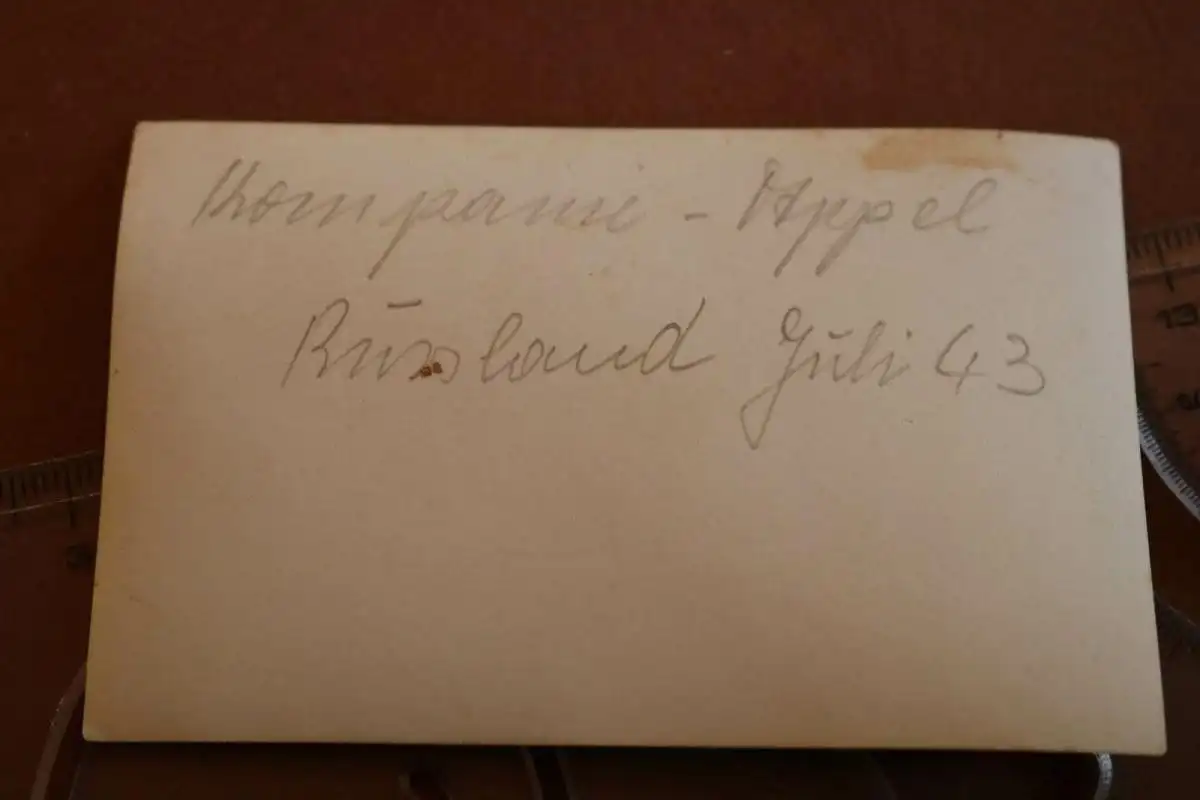 Kompanie - Appel
Russland Juli 43
13